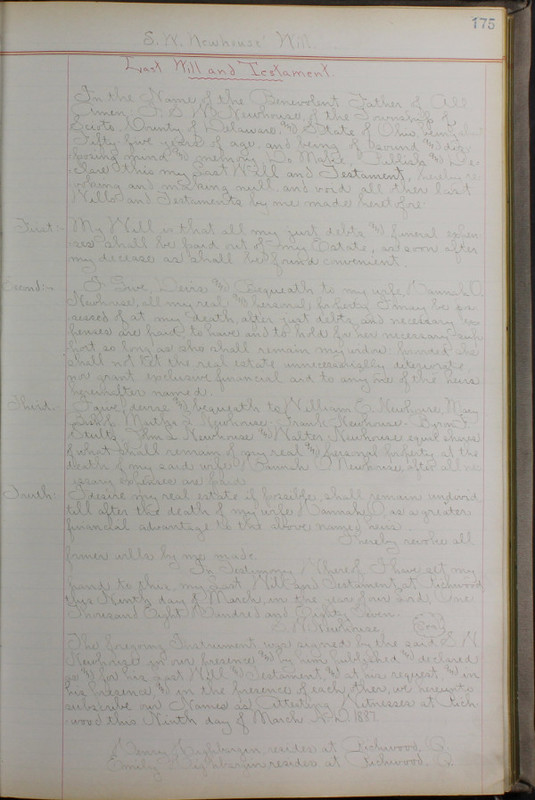 175
S. N. Newhouse Will
Last Will and Testament.
In the Name of the Benevolent Father of All
Amen I S. N. Newhouse of the Township of
Scioto County of Delaware & State of Ohio being
Fifty five years of age and being of sound & dis-
posing mind & memory Do Make, Publish & De-
clare this my Last Will and Testament, hereby re-
voking and making null and void all other Last
Wills and Testaments by me made heretofore
First:- My Will is that all my just debts & funeral expen-
ses shall be paid out of my Estate, as soon after
my decease as shall be found convenient.
Second:- I Give Devise & Bequeath to my wife Hannah O
Newhouse, all my real & personal property I may be po-
ssessed of at my death after just debts and necessary ex-
penses are paid to have and to hold for her necessary sup-
port so long as she shall remain my widow, provided she
shall not let the real estate unnecessarily deteriorate
nor grant exclusive financial aid to any one of the heirs
hereinafter named.
Third:- I give, devise & bequeath to William E Newhouse, Mary
Newhouse Frank Newhouse
Stults, Newhouse & Walter Newhouse equal shares
of what shall remain of my real & personal property at the
death of my said wife Hannah O Newhouse after all ne-
cessary expenses are paid
I desire my real estate if possible, shall remain undivid
till after the death of my wife Hannah O as a greater
financial advantage to the above named heirs.
I hereby revoke all
former wills by me made
In Testimony Whereof I have set my
hand to this my Last Will and Testament, at Richwood
this Ninth day of March, in the year of our Lord One
Thousand Eight Hundred and Eighty Seven.
S. N. Newhouse
The foregoing Instrument was signed by the said S. N
Newhouse in our presence & by him published & declared
as & for his Last Will & Testament & at his request, & in
his presence & in the presence of each other, we hereunto
subscribe our Names as Attesting Witnesses at Rich-
wood this Ninth day of March A.D. 1887
Henry resides at Richwood, O
Emily resides at Richwood, O